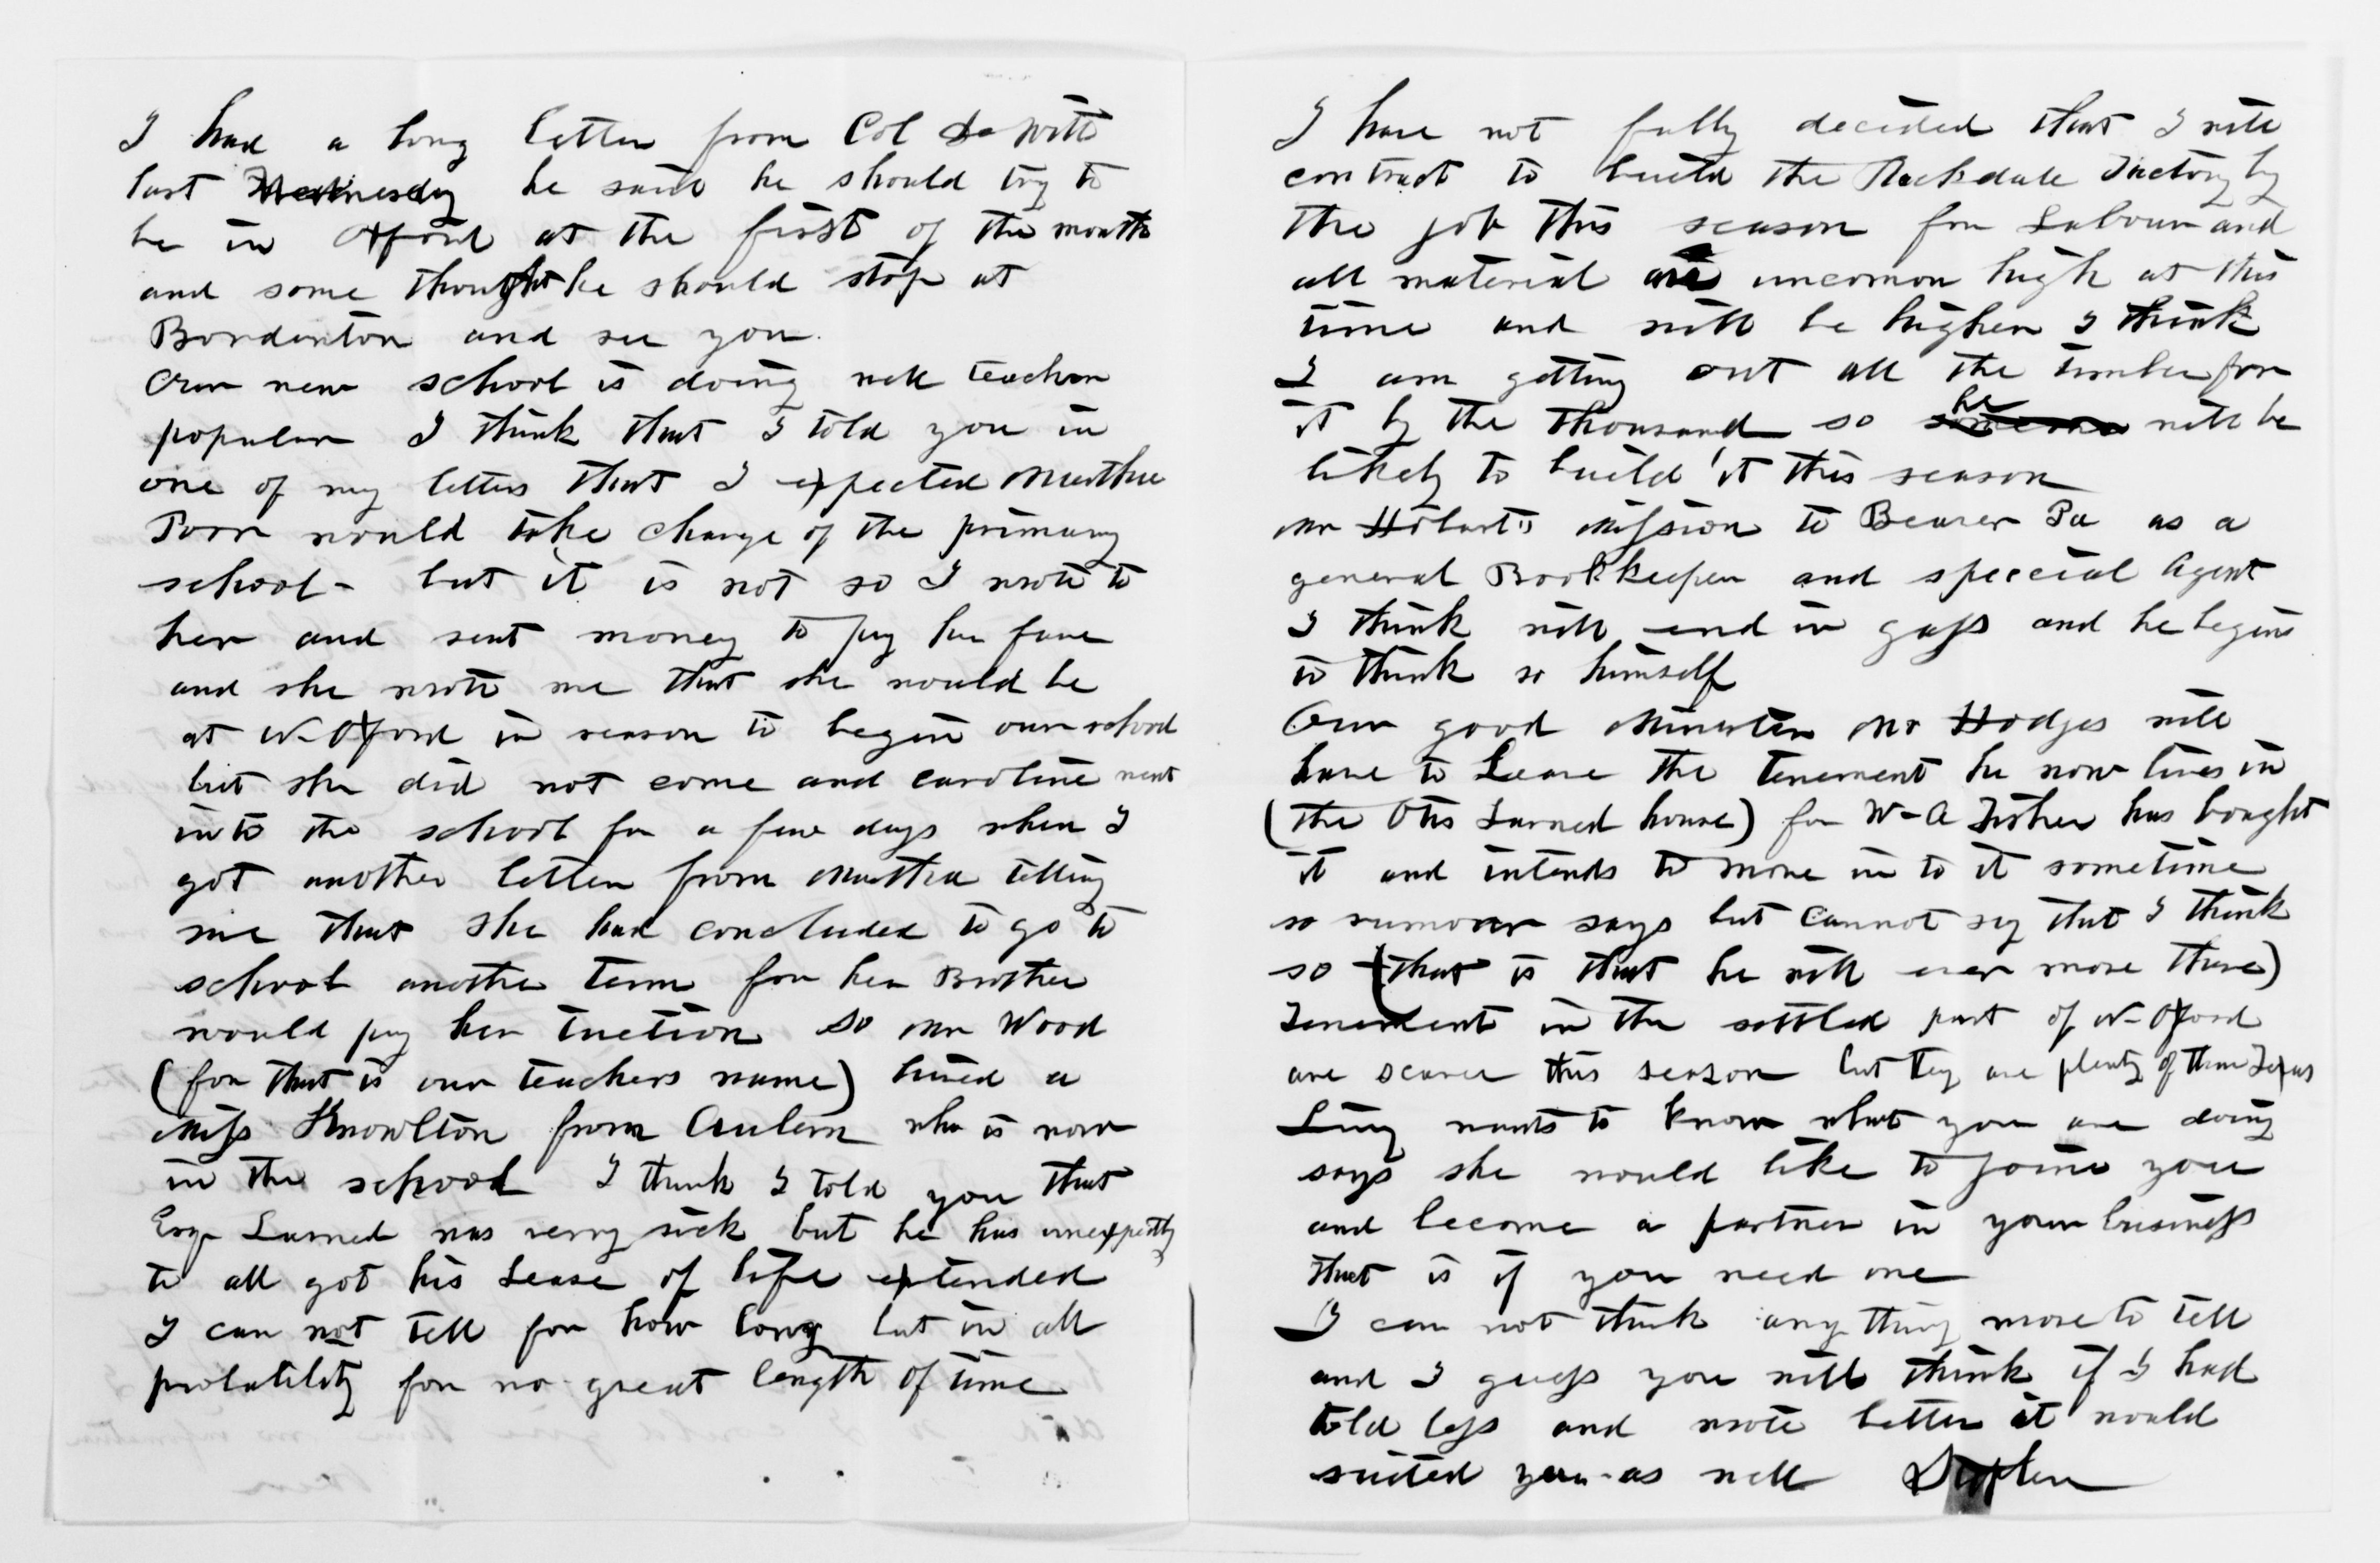 I have a long letter from Col De Witt
last Wednesday he said he should try to
be in Oxford at the first of the month
and some thought he should stop at
Bordenton and see you.
Our new school is doing well teacher
popular I think that I told you in
one of my letters that I expected Marthee
Poor would take charge of the primary
school - but it is not so I wrote to
her and sent money to pay her fare
and she wrote me that she would be
at N-Oxford in season to begin our school
but she did not come and Caroline went
into the school for a few days when I
got another letter from Martha telling
me that she had concluded to go to
school another term for her Brother
would pay her tuetion so Mr Wood
(for that is our teachers name) hired a
Miss Knowlton from Auburn who is now
in the school I think I told you that
Esqr Larned was verry sick but he has unexpectly
to all got his Lease of life extended
I can not tell for how long but in all
probability for no great length of time
I have not fully decided that I will
contract to build the Rockdale Factory by
the job this season for Labour and
all material are uncomon high at this
time and will be higher I think
I am getting out all the timber for
it by the thousand so he will be
likely to build it this season
Mr Hobart's Mission to Beaver Pa as a
general Bookkeeper and special Agent
I think will end in gass and he begins
to think so himself
Our good Minister Mr Hodges will
have to Leave the tenement he now lives in
(the Otis Larned house) for W-A Fisher has bought
it and intends to move in to it sometime
so rumour says but cannot say that I think
so (that is that he will ever move there)
Tenement in the settled part of N-Oxford
are scarce this season but they are plenty of them Texas
Lucy wants to know what you are doing
says she would like to joine you
and become a partner in your business
that is if you need one
I can not think any thing more to tell
and I guess you will think if I had
told less and wrote better it would
suited you as well Stephen